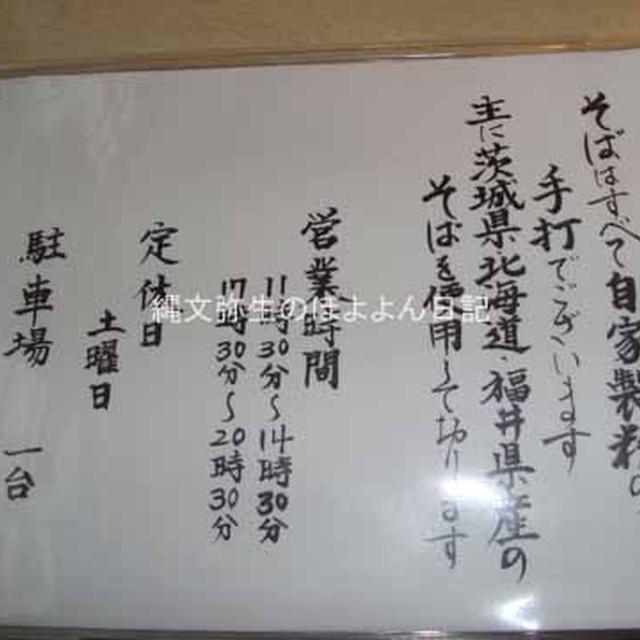 そばはすべて自家製粉の
手打でございます
主に茨城県北海道・福井県産の
そばを使用して切ります
営業時間
11時30分～14時30分
17時30分～20時30分
定休日
土曜日
駐車場 一台
縄文弥生のほよよん日記